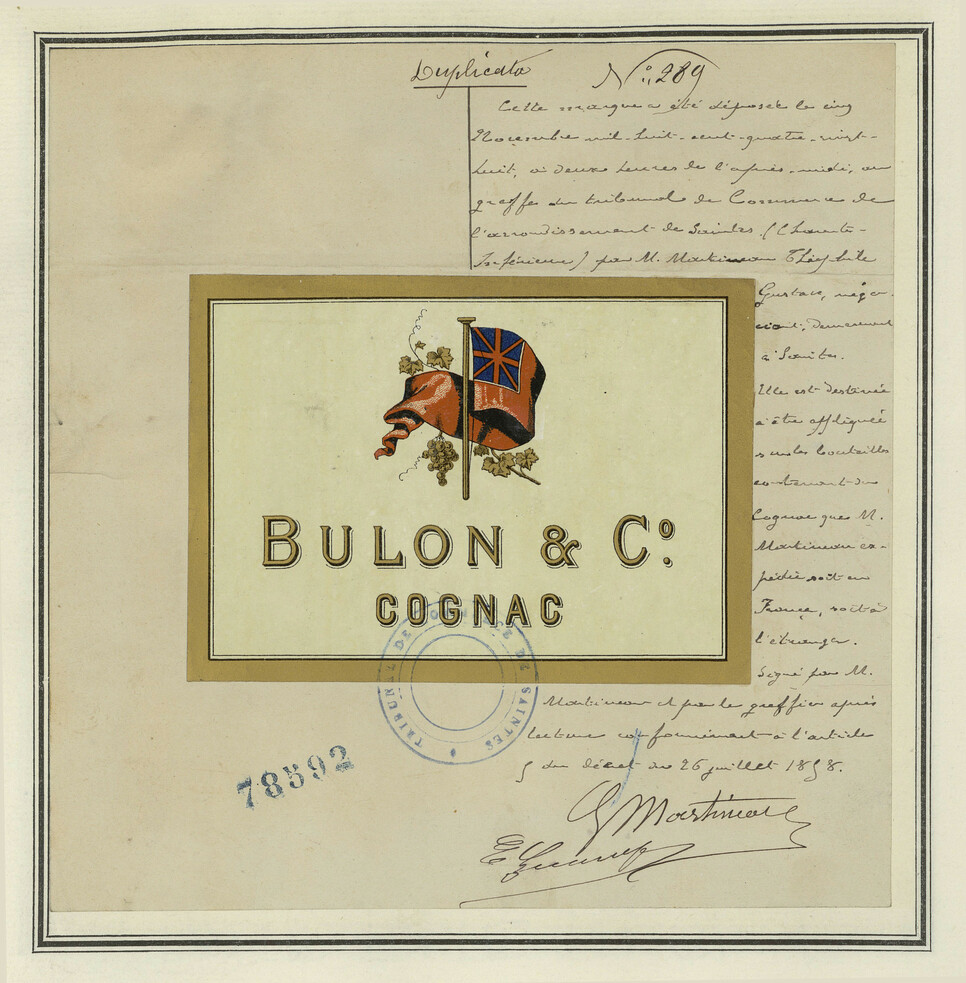 Duplicata
N° 289
Cette marque a été déposée le cinq
Novembre mil-huit-cent-quatre-vingt-
huit, à deux heures de l'après-midi, au
greffe du tribunal de Commerce de
l'arrondissement de Saintes (Charente-
Inférieure) par M. Martineau Théophile
Gustave, négo-
ciant, demeurant
à Saintes.
Elle est destinée
à être appliquée
sur les bouteilles
contenant du
Cognac que M.
Martineau ex-
pédie soit en
France, soit à
l'étranger.
Signé par M.
Martineau et par le greffier après
lecture conformément à l'article
5 du décret du 26 juillet 1858.
G Martineau
BULON & Co.
COGNAC
TRIBUNAL DE COMMERCE DE SAINTES
78592